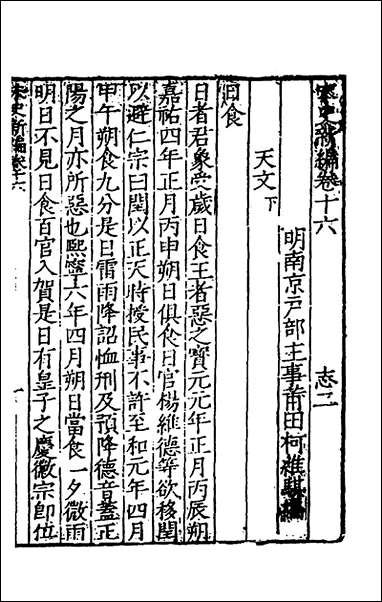 宋史新編卷十六　志二
明南京戸部主事莆田柯維騏編
天文下
日食
日者君象受歲日食王者惡之寶元元年正月丙辰朔
嘉祐四年正月丙申朔日俱食日官楊維德等欲移閏
以避仁宗曰閏以正天時授民事不許至和元年四月
甲午朔食九分是日雷雨降詔恤刑及預降德音蓋正
陽之月亦所惡也熙寧六年四月朔日當食一夕微雨
明日不見日食百官入賀是日有皇子之慶徽宗即位
宋史新編卷十六　一